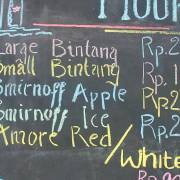 Large Bintang Rp.2
Small Bintang Rp.1
Smirnoff Apple Rp2
Smirnoff Ice Rp.2
Amore Red/White